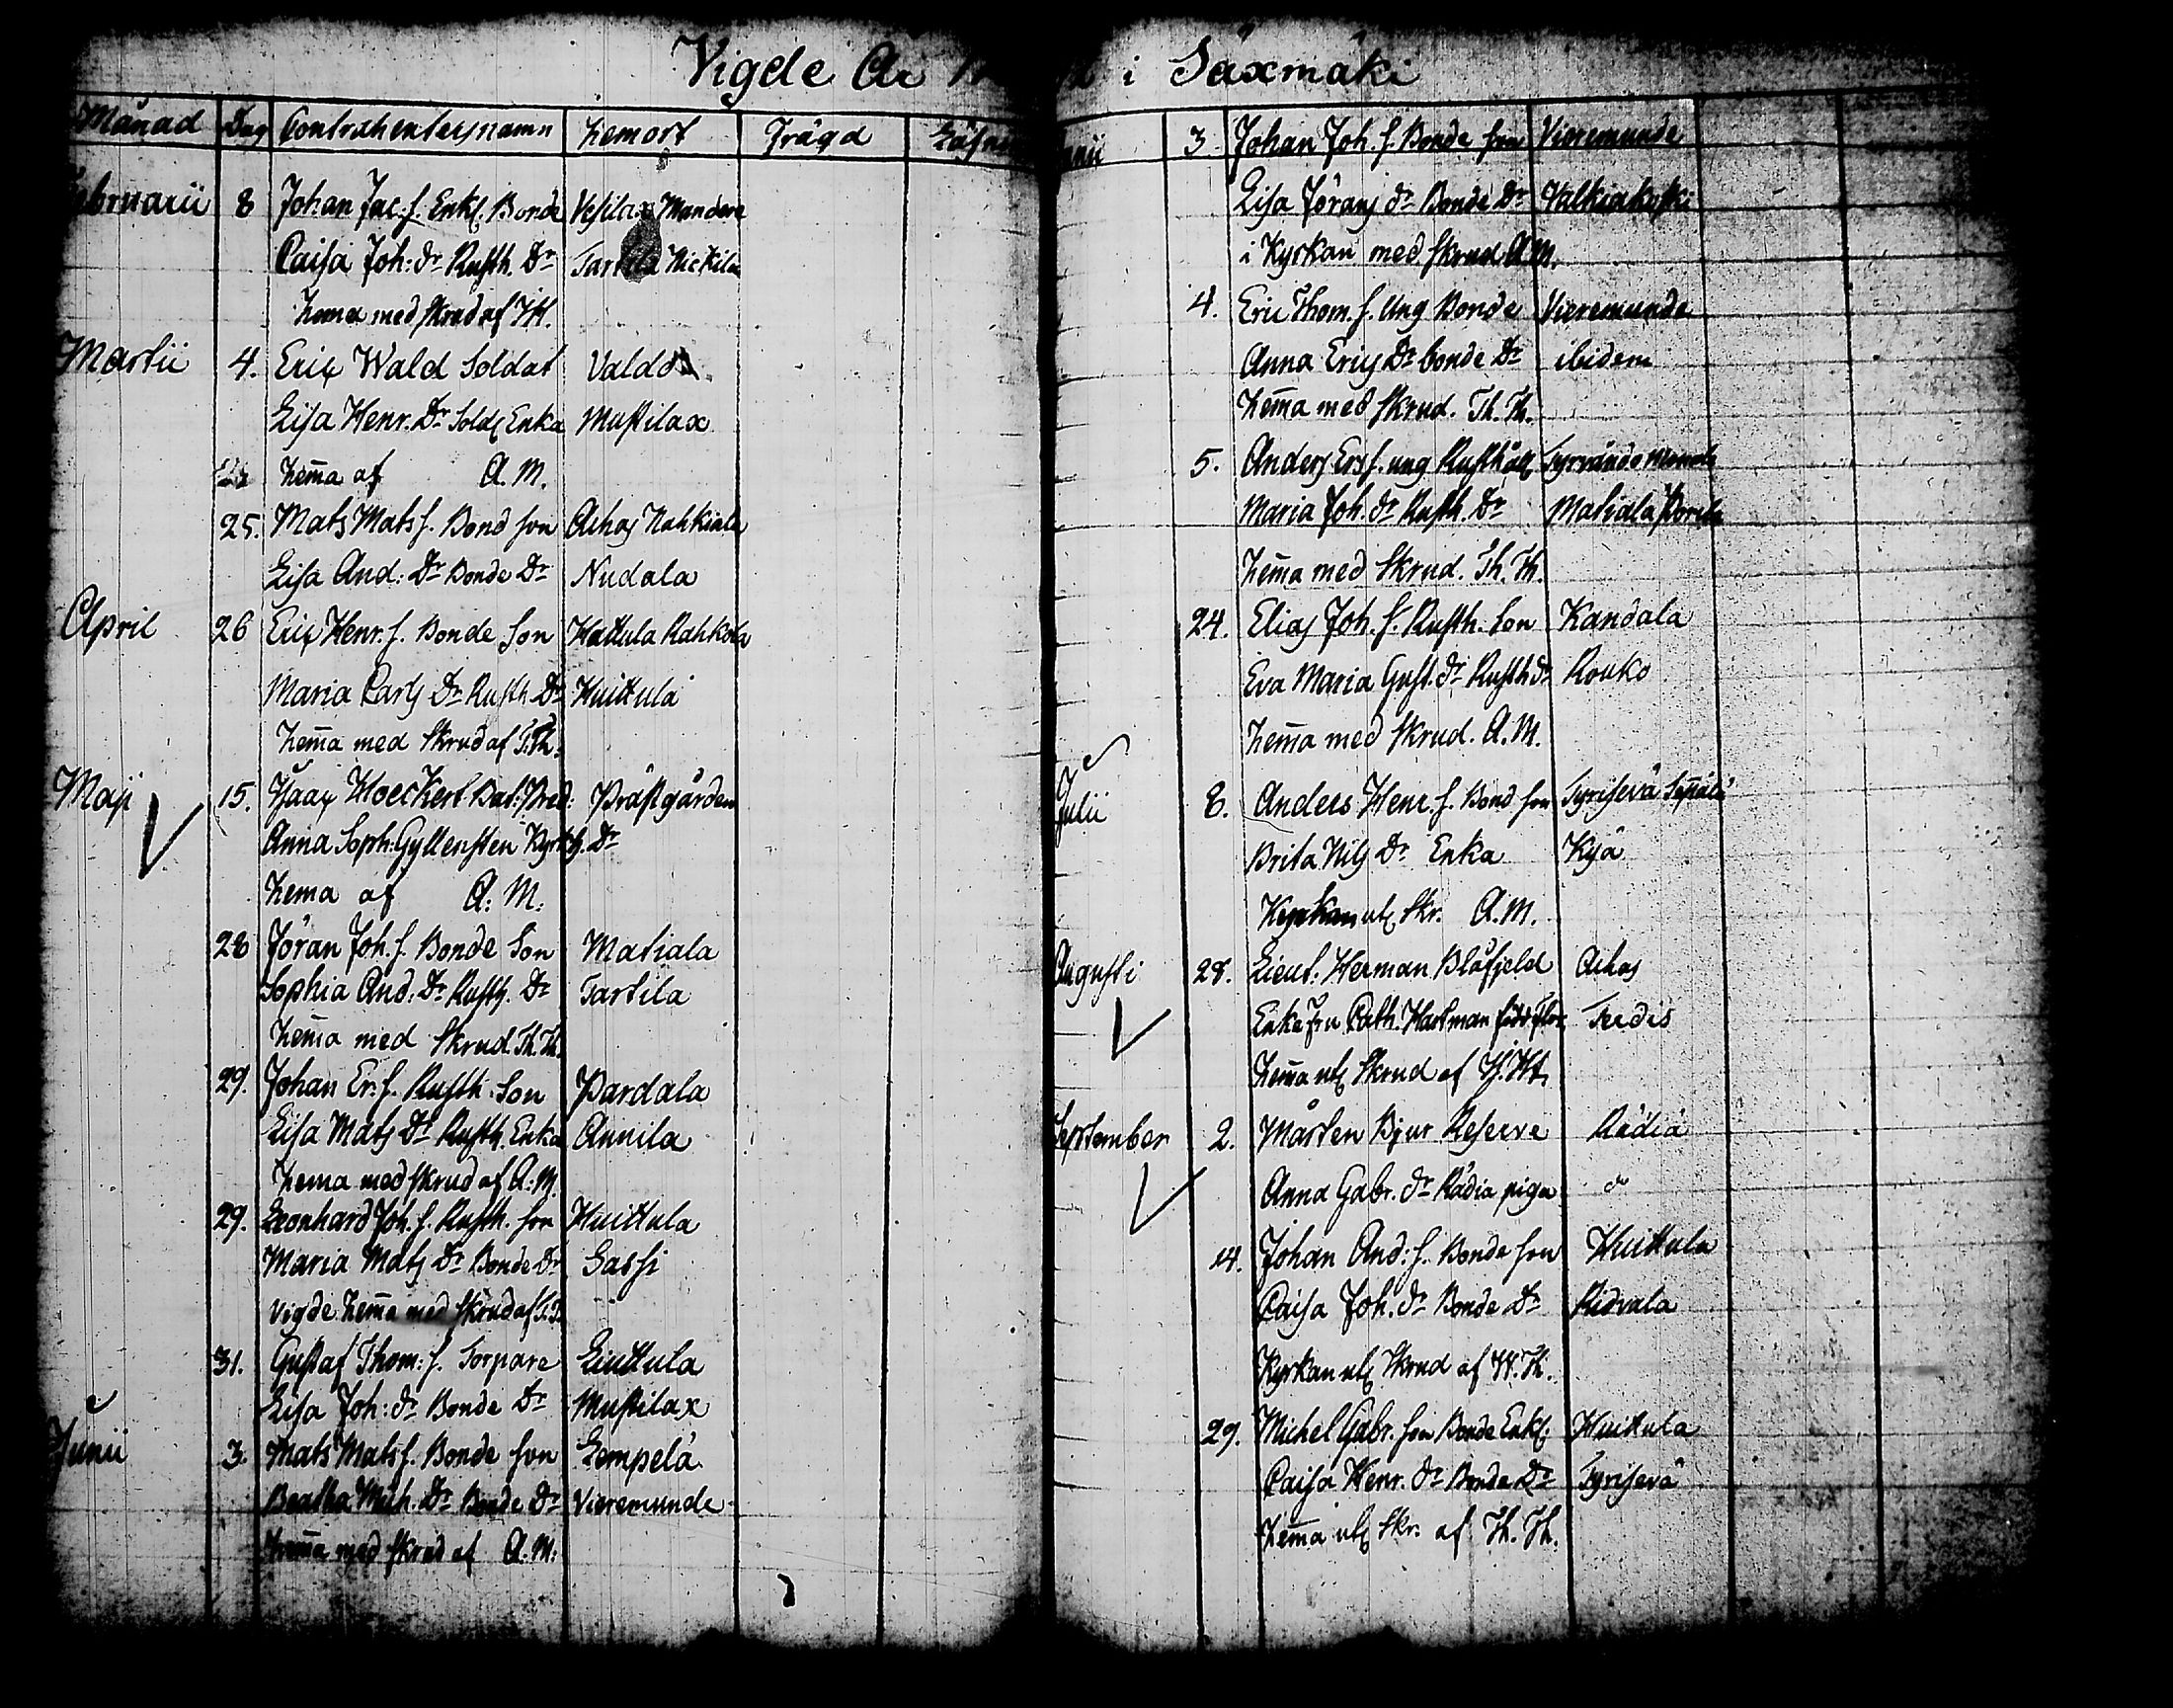 Vigde År i Säxmäki
Månad Dag Contrahenternes namn hemort Trägd
Februarii 8 Johan Jac: s. Enkl. Bonde Vesilax Mandere
Caisa Joh: dr Rusth. Dr Tarttila Nickilä
hema med skrud af
Martii 4. Eric Wald Soldat
Lisa Henr. Dr Solds Enka Mustilax
hem̄a af A. M.
25. Mats Mats s. Bond son Achas Nahkiala
Lisa And: Dr Bonde Dr Nudala
April 26 Eric Henr. s. Bonde Son Hattula Rahkola
Maria Carls Dr Rusth. Dr Huittula
hem̄a med Skrud af T.Th.
Maji 15. Isaac Hoeckert Bat: Pred: Prästgården
Anna Soph: Gyllensten Kyrkh. Dr
hema af A. M.
28 Jöran Joh. s. Bonde Son Matiala
Sophia And. Dr Rusth. Dr Tartila
hem̄a med Skrud Th. Th.
29. Johan Er. s. Rusth. Son Pardala
Lisa Mats Dr Rusth. Enka Annila
hema med skrud af A. M.
29. Leonhard Joh. s. Rusth. son Huittula
Maria Mats Dr Bonde Dr Sassi
vigde hem̄a med skrud af
31. Gustaf Thom: s. Torpare Liuttula
Lisa Joh: dr Bonde Dr Mustilax
Junii 3. Mats Mats s. Bonde son Lempelä
Beatha Mich. Dr Bonde Dr Vieremunde
hem̄a med skrud af A. M:
Junii 3. Johan Joh. s. Bonde son Vieremunde
Lisa Jörans dr Bonde Dr Valkiakoski
i Kyrkan med skrud A M.
4. Eric Thom. s. Ung Bonde Vieremunde
Anna Erics Dr bonde Dr ibidem
hem̄a med Skrud. Th. Th.
5. Anders Ers s. ung Rusthåll
Maria Joh. dr Rusth. Dr Matiala
hem̄a med Skrud. Th. Th.
24. Elias Joh. s. Rusth. Son Kandala
Eva Maria Gust. dr Rusth dr Rouko
hem̄a med Skrud. A. M.
Julii 8. Anders Henr. s. Bond son Tyrisevä
Brita Nils Dr Enka
Kyrkan utς Skr. A. M.
Augusti 28. Lieut. Herman Blåfjeld Achas
Enke fru Cath. Hartman född
hem̄a utς Skrud af
September 2. Mårten Bjur Reserve Rädiä
Anna Gabr. dr Rädiä piga do
14. Johan And: s. Bonde son Huittula
Caisa Joh. dr Bonde Dr Ridvala
Kyrkan utς Skrud af
29. Michel Gabr. son Bonde Enkl. Huittula
Caisa Henr. dr Bonde Dr Tyrisevä
hem̄a utς Skr. af Th. Th.